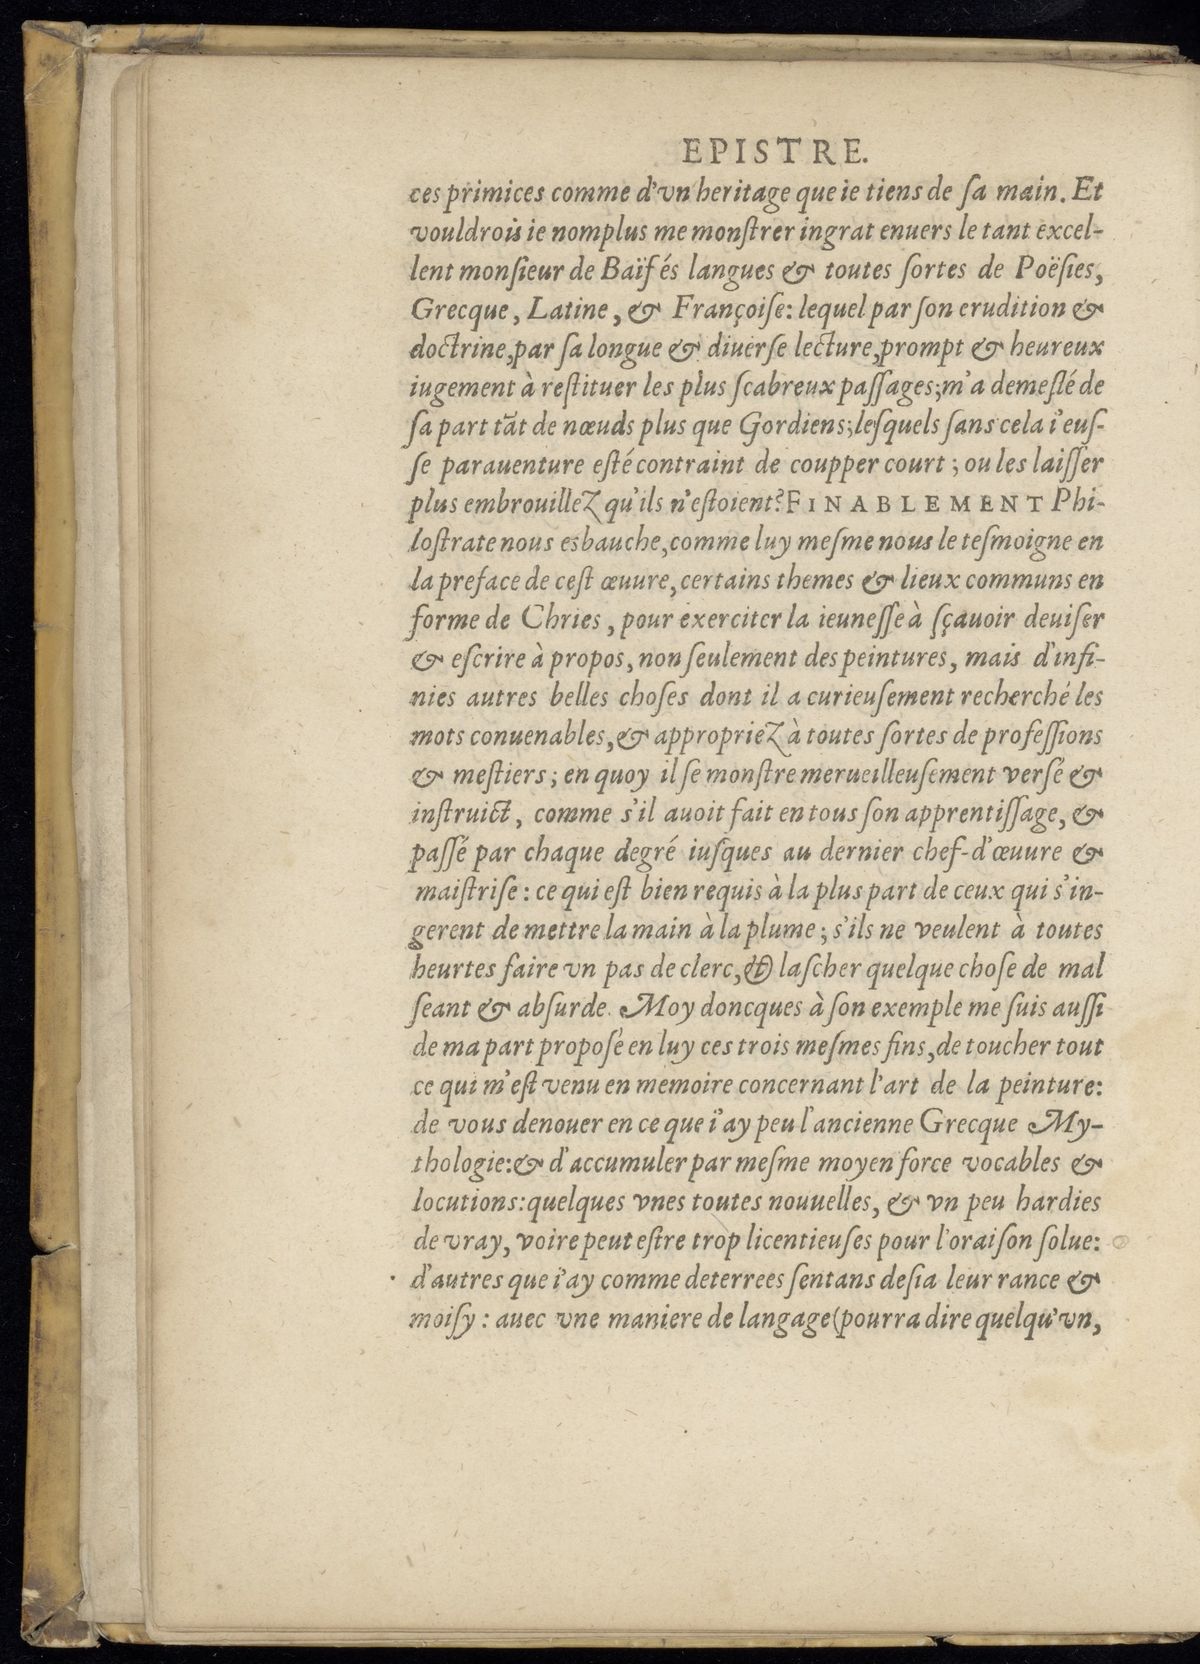 EPISTRE.
ces primices comme d'vn heritage que ie tiens de ſa main. Et
vouldrois ie nomplus me monſtrer ingrat enuers le tant excel-
lent monſieur de Baïf és langues & toutes ſortes de Poëſies,
Grecque, Latine, & Françoiſe: lequel par ſon erudition &
doctrine, par ſa longue & diuerſe lecture, prompt & heureux
iugement à reſtituer les plus ſcabreux paſſages; m'a demeſlé de
ſa part tãt de nœuds plus que Gordiens; leſquels ſans cela i'euſ-
ſe parauenture eſté contraint de coupper court; ou les laiſſer
plus embrouillez qu'ils n'eſtoient? FINABLEMENT Phi-
loſtrate nous esbauche, comme luy meſme nous le teſmoigne en
la preface de ceſt œuure, certains themes & lieux communs en
forme de Chries, pour exerciter la ieuneſſe à ſçauoir deuiſer
& eſcrire à propos, non ſeulement des peintures, mais d'infi-
nies autres belles choſes dont il a curieuſement recherché les
mots conuenables, & appropriez à toutes ſortes de profeſſions
& meſtiers; en quoy il ſe monſtre merueilleuſement verſé &
inſtruict, comme s'il auoit fait en tous ſon apprentiſſage, &
paſſé par chaque degré iuſques au dernier chef-d'œuure &
maiſtriſe: ce qui eſt bien requis à la plus part de ceux qui s'in-
gerent de mettre la main à la plume; s'ils ne veulent à toutes
heurtes faire vn pas de clerc, & laſcher quelque choſe de mal
ſeant & abſurde. Moy doncques à ſon exemple me ſuis auſſi
de ma part propoſé en luy ces trois meſmes fins, de toucher tout
ce qui m'eſt venu en memoire concernant l'art de la peinture:
de vous denouer en ce que i'ay peu l'ancienne Grecque My-
thologie: & d'accumuler par meſme moyen force vocables &
locutions: quelques vnes toutes nouuelles, & vn peu hardies
de vray, voire peut eſtre trop licentieuſes pour l'oraiſon ſolue:
d'autres que i'ay comme deterrees ſentans deſia leur rance &
moiſy: auec vne maniere de langage (pourra dire quelqu'vn,